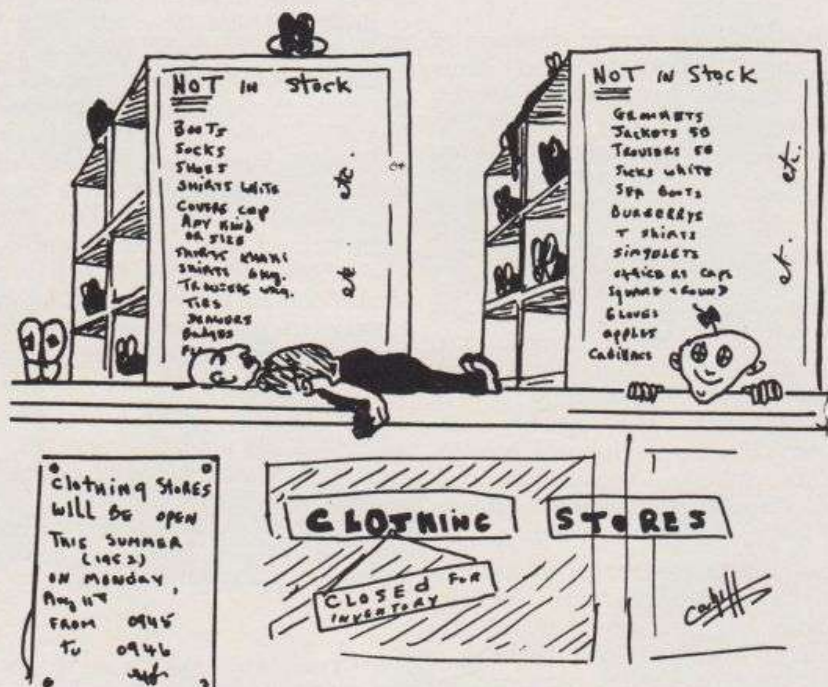 NOT IN Stock
BOOTS
SOCKS
SHOES
SHIRTS WHITE
COVERS CAP
ANY KIND
OR SIZE
SHIRTS KHAKI
SHIRTS
TROUSERS
TIES
DRAWERS
Badges
etc.
etc.
NOT IN Stock
GROMMETS
JACKETS 5B
TROUSERS 5B
SOCKS WHITE
SEA BOOTS
BURBERRYS
T SHIRTS
SINGLETS
OFFICERS CAPS
SQUARE & ROUND
GLOVES
apples
CADILLACS
etc.
et.
Clothing STORES
WILL BE OPEN
THIS SUMMER
(1952)
ON MONDAY,
Aug 11th
FROM 0945
To 0946
CLOTHING STORES
CLOSED FOR
INVENTORY